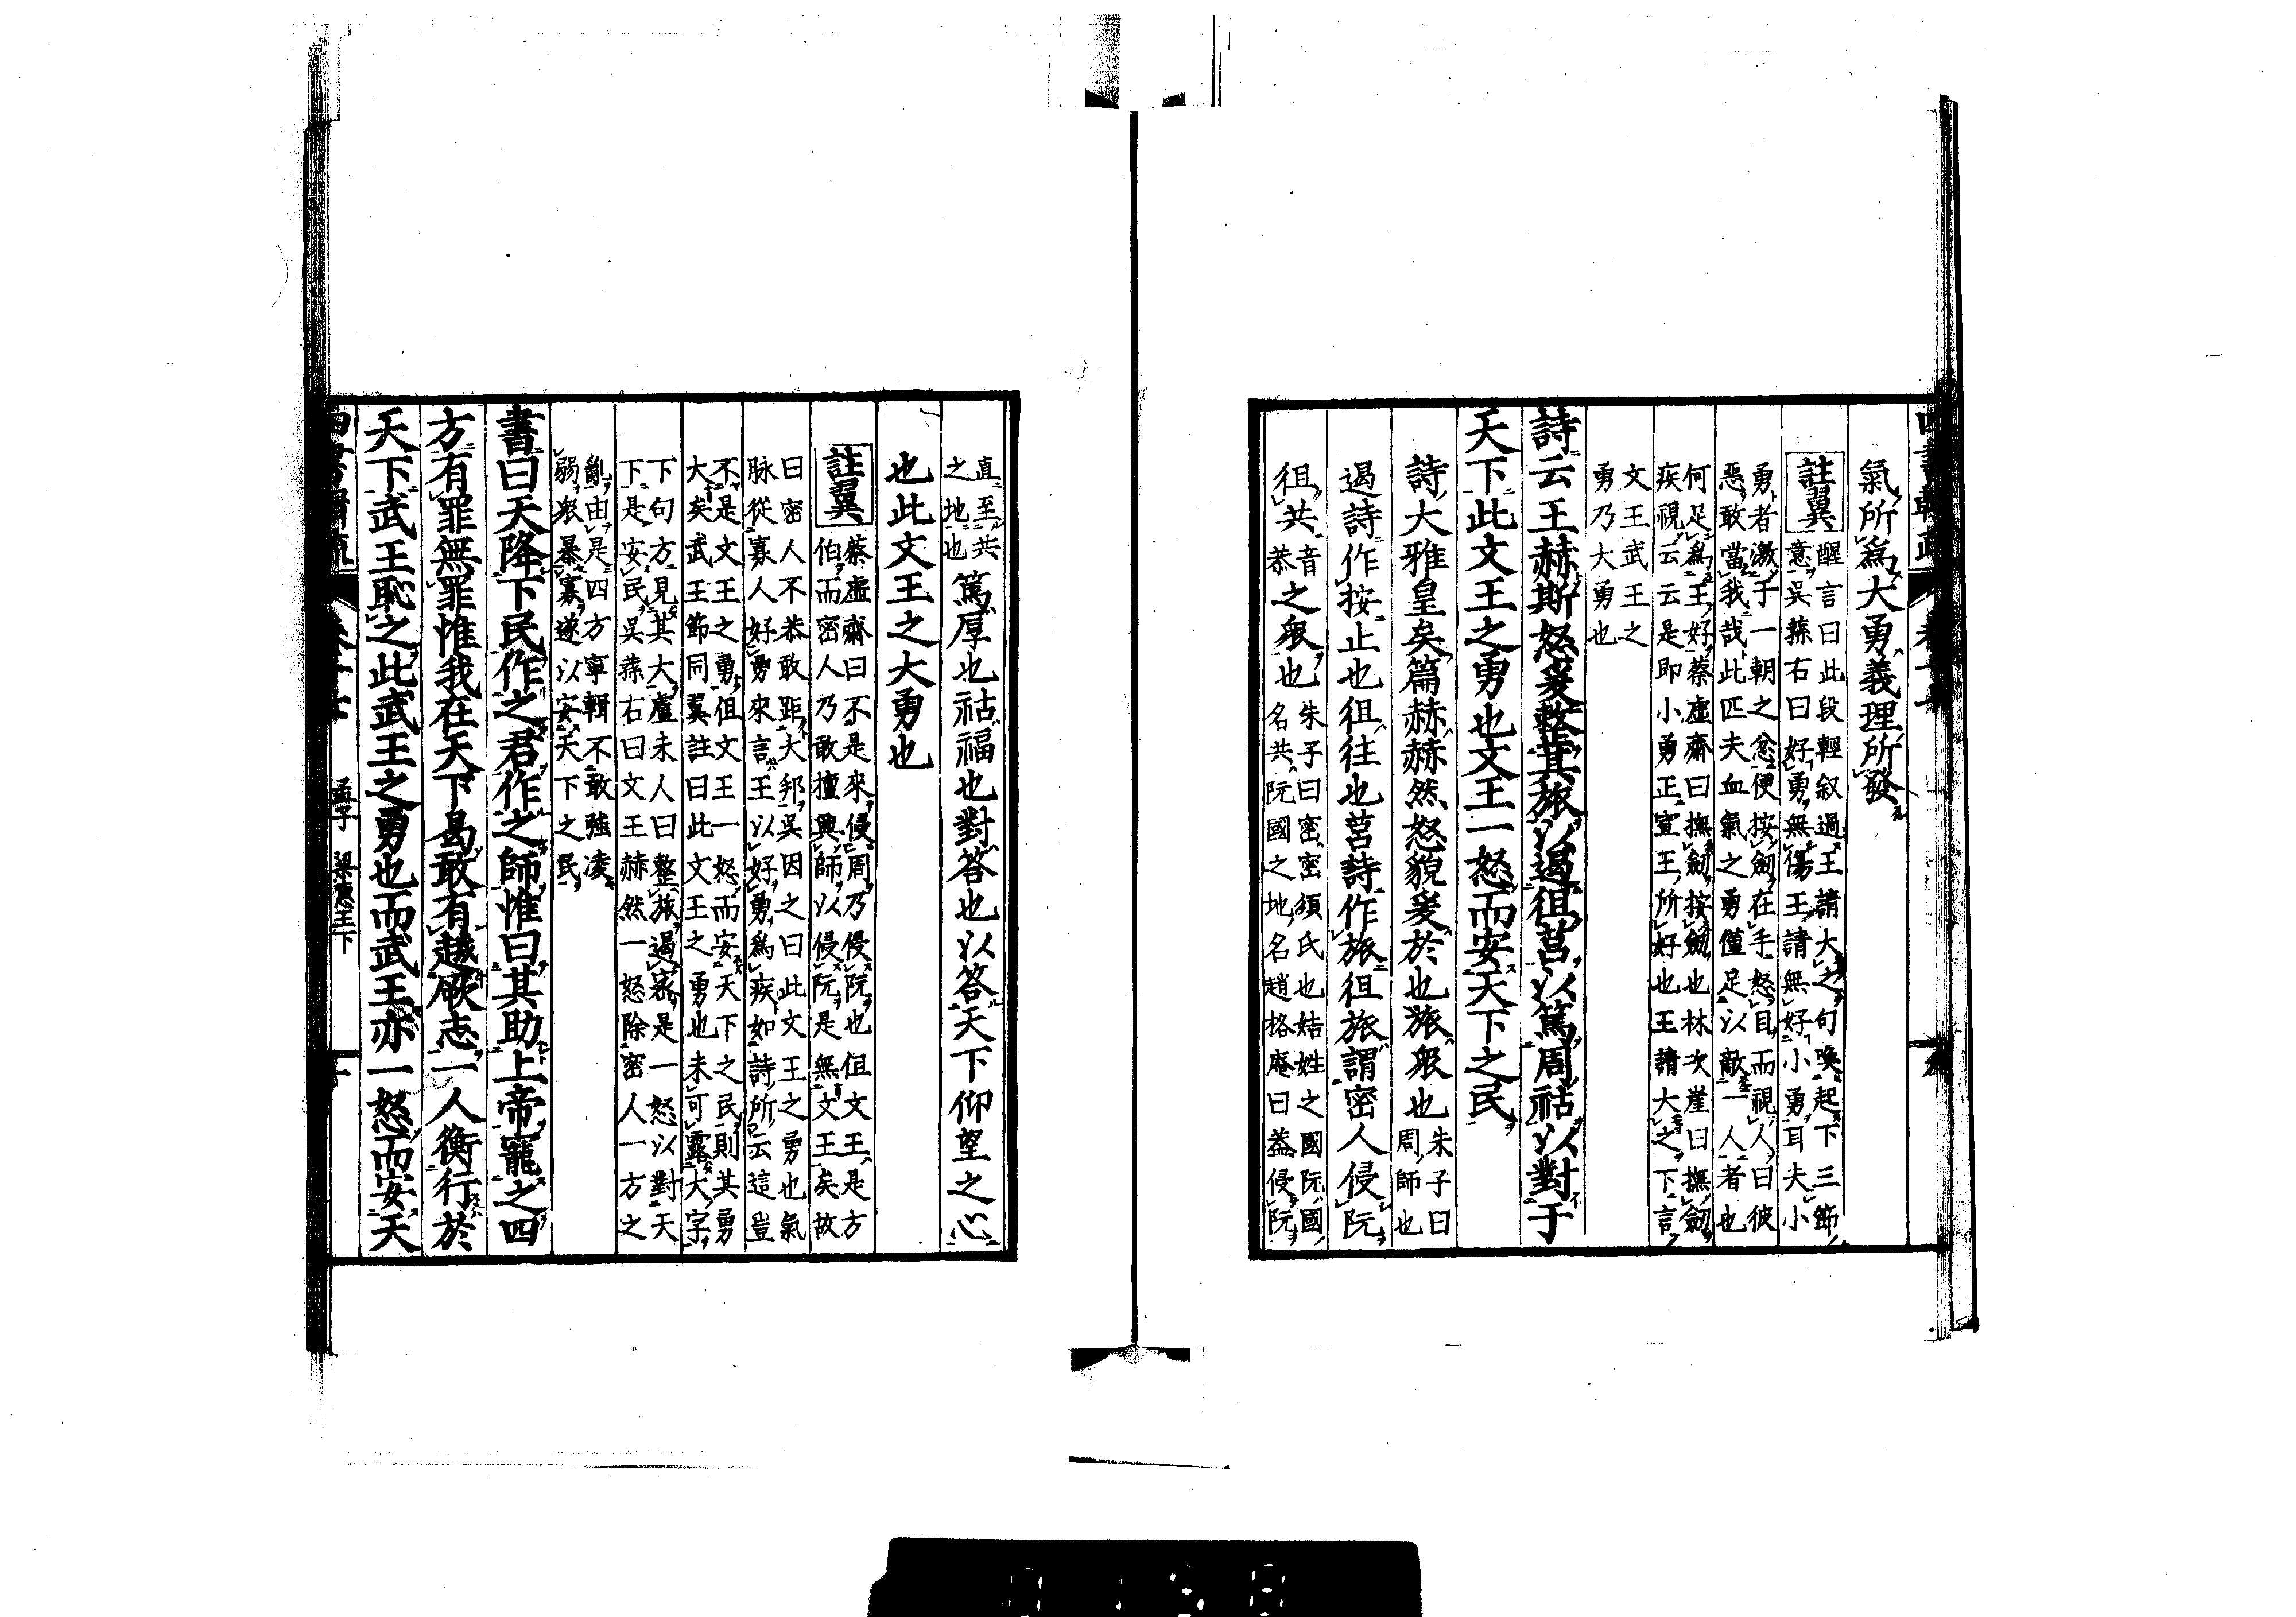 氣所爲大勇義理所發
註翼
醒言曰此段輕叙過王請大之句喚起下三節
意吳蓀右曰好勇無傷王請無好小勇耳夫小
勇者激于一朝之忿便按劒在手怒目而視人曰彼
惡敢當我哉此匹夫血氣之勇僅足以敵一人者也
何足爲王好蔡虛齋曰撫劒按劒也林次崖曰撫劒
疾視云云是即小勇正宣王所好也王請大之下言
文王武王之
勇乃大勇也
詩云王赫斯怒爰整其旅以遏徂莒以篤周祜以對于
天下此文王之勇也文王一怒而安天下之民
詩大雅皇矣篇赫赫然怒貌爰於也旅衆也
朱子曰
周師也
遏詩作按止也徂往也莒詩作旅徂旅謂密人侵阮
徂共
音
恭
之衆也
朱子曰密密須氏也姞姓之國阮國
名共阮國之地名趙格庵曰蓋侵阮
直至共
之地也
篤厚也祜福也對答也以答天下仰望之心
也此文王之大勇也
註翼
蔡虛齋曰不是來侵周乃侵阮也但文王是方
伯而密人乃敢擅興師以侵阮是無文王矣故
曰密人不恭敢距大邦吳因之曰此文王之勇也氣
脉從寡人好勇來言王以好勇爲疾如詩所云這豈
不是文王之勇但文王一怒而安天下之民則其勇
大矣武王節同翼註曰此文王之勇也未可露大字
下句方見其大盧未人曰整旅遏密是一怒以對天
下是安民吳蓀右曰文王赫然一怒除密人一方之
亂由是四方寧輯不敢強凌
弱衆暴寡遂以安天下之民
書曰天降下民作之君作之師惟曰其助上帝寵之四
方有罪無罪惟我在天下曷敢有越厥志一人衡行於
天下武王恥之此武王之勇也而武王亦一怒而安天
孟子 梁惠王下